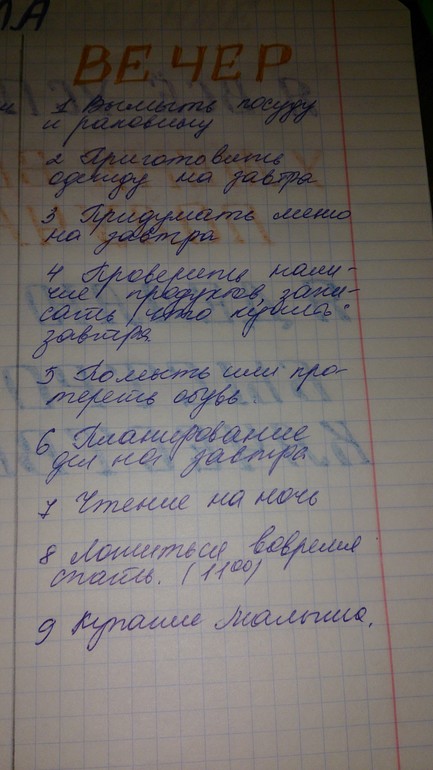 ЛА
ВЕЧЕР
1 Вымыть посуду
и раковину
2 Приготовить
одежду на завтра
3 Придумать меню
на завтра
4 Проверить нали-
чие продуктов, запи-
сать что купить
завтра
5 Помыть или про-
тереть обувь.
6 Планирование
дел на завтра
7 Чтение на ночь
8 Ложиться вовремя
спать. (11⁰⁰)
9 Купание малыша.